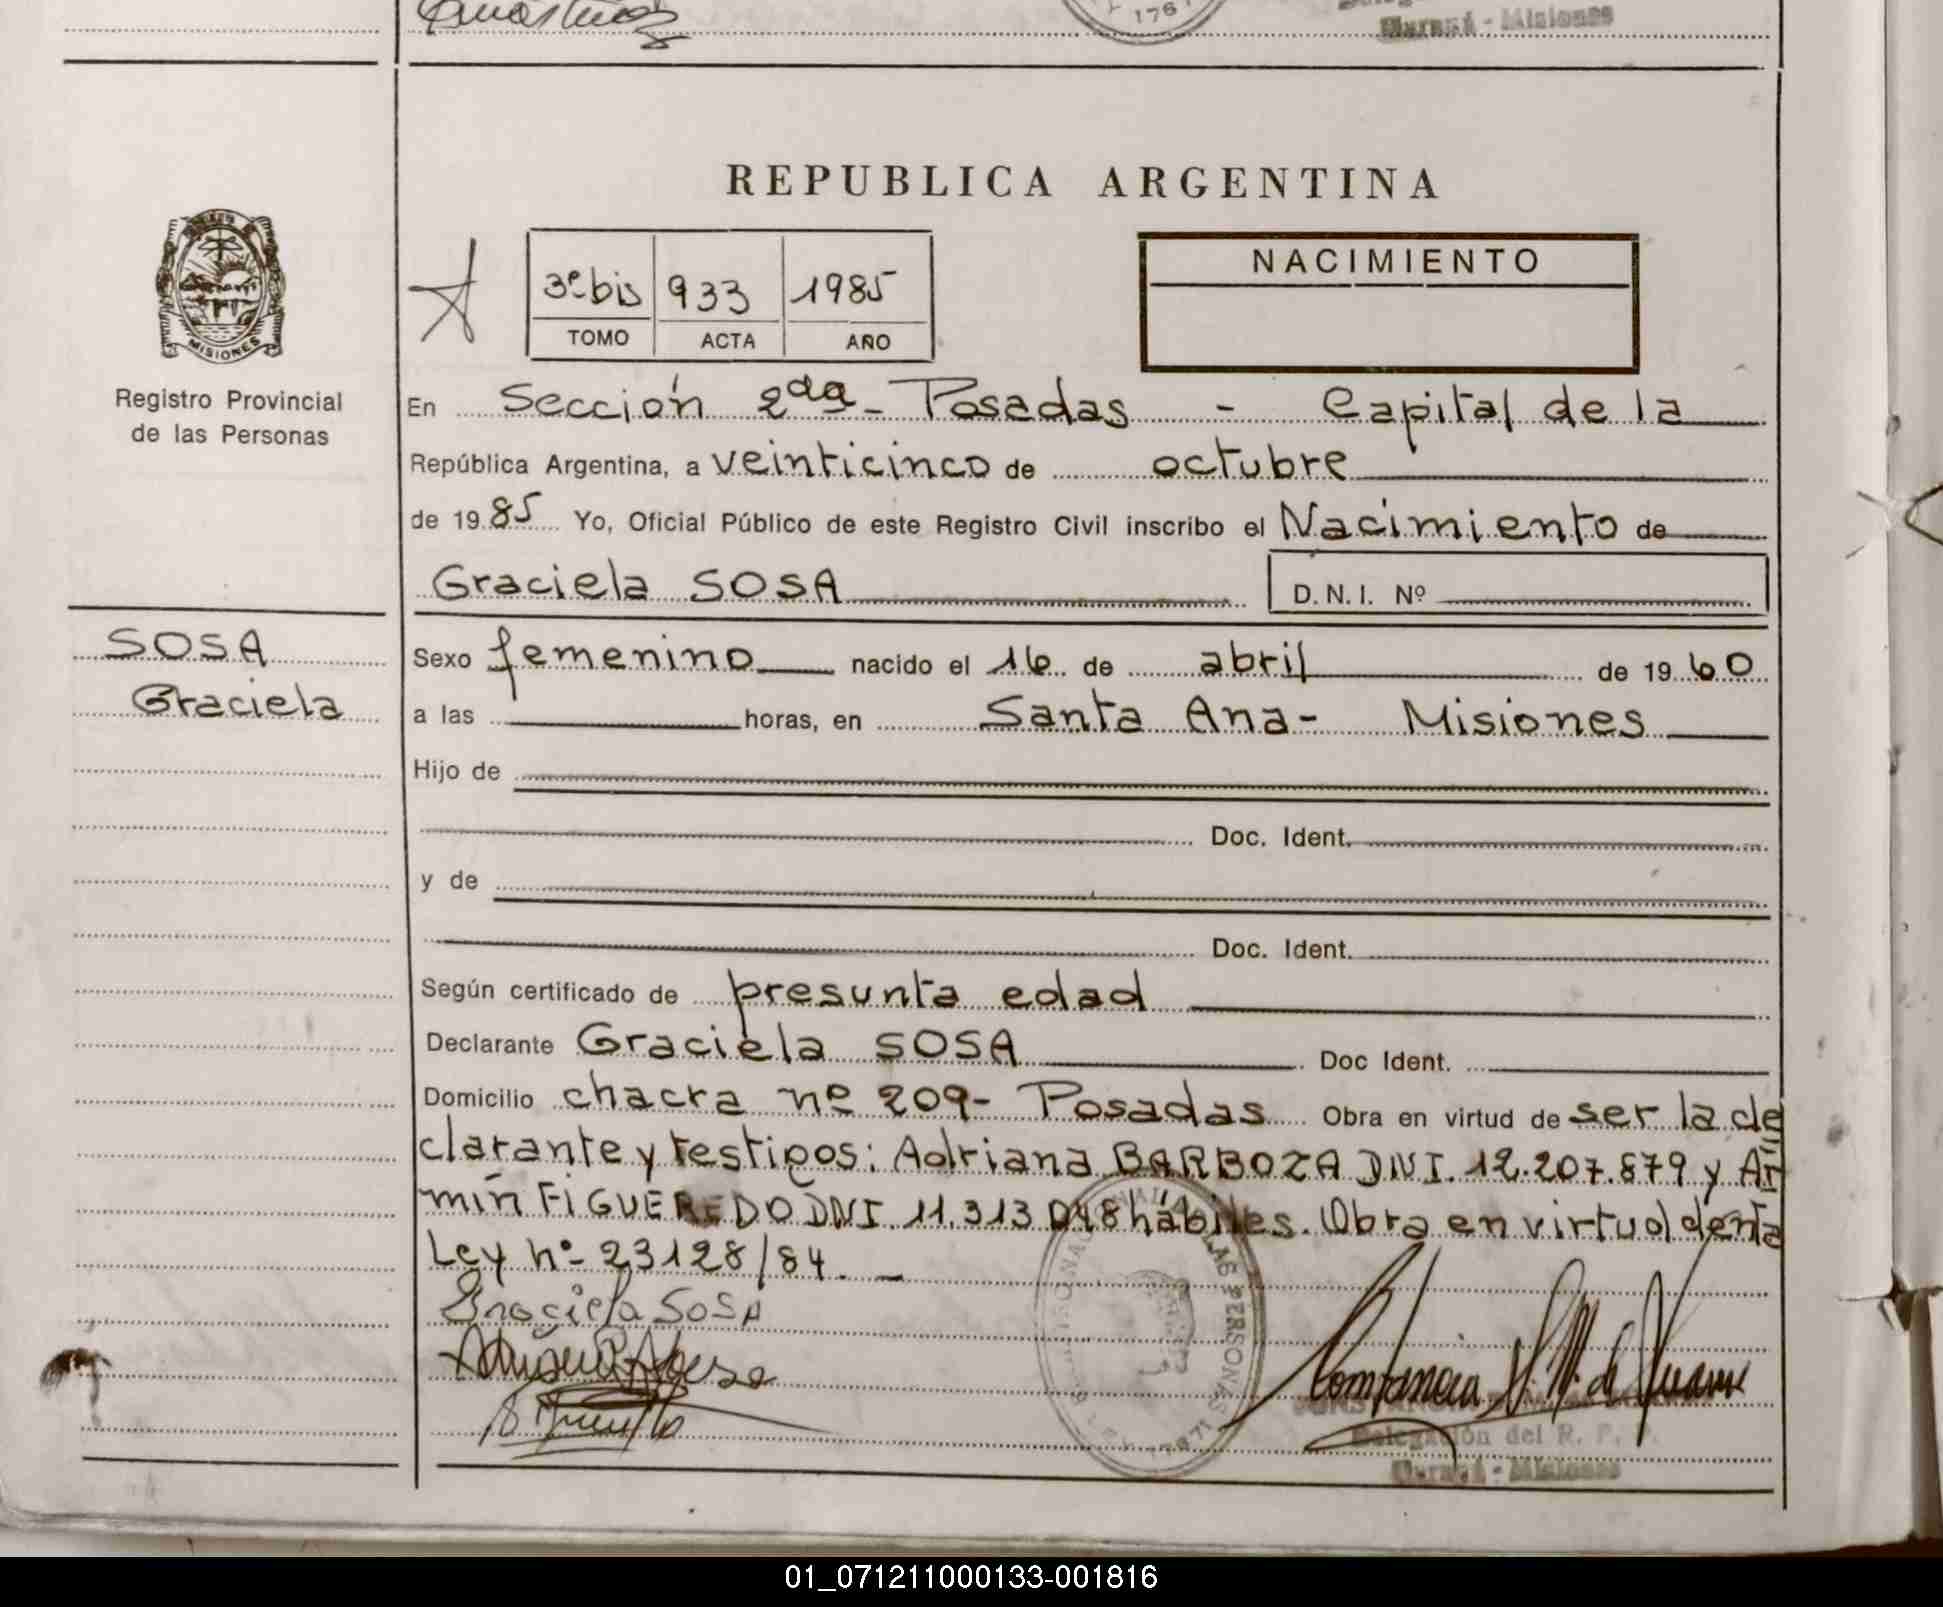 176
Maraná - Misiones
REPUBLICA ARGENTINA
NACIMIENTO
3º bis 933 1985
TOMO ACTA AÑO
MISIONES
Registro Provincial
de las Personas
En Sección 2da - Posadas - Capital de la
República Argentina, a veinticinco de octubre
de 1985 Yo, Oficial Público de este Registro Civil inscribo el Nacimiento de
Graciela SOSA D.N.I. Nº
SOSA
Graciela
Sexo femenino nacido el 16 de abril de 1960
a las horas, en Santa Ana - Misiones
Hijo de
Doc. Ident.
y de
Doc. Ident.
Según certificado de presunta edad
Declarante Graciela SOSA Doc Ident.
Domicilio chacra nº 209 - Posadas Obra en virtud de ser la de
clarante y testigos: Adriana BARBOZA DNI. 12.207.879 y Ar
mín FIGUEREDO DNI. 11.313.048 hábiles. Obra en virtud de la
Ley nº 23128/84. -
Graciela SOSA
Delegación del R. P. P.
Maraná - Misiones
01_071211000133-001816